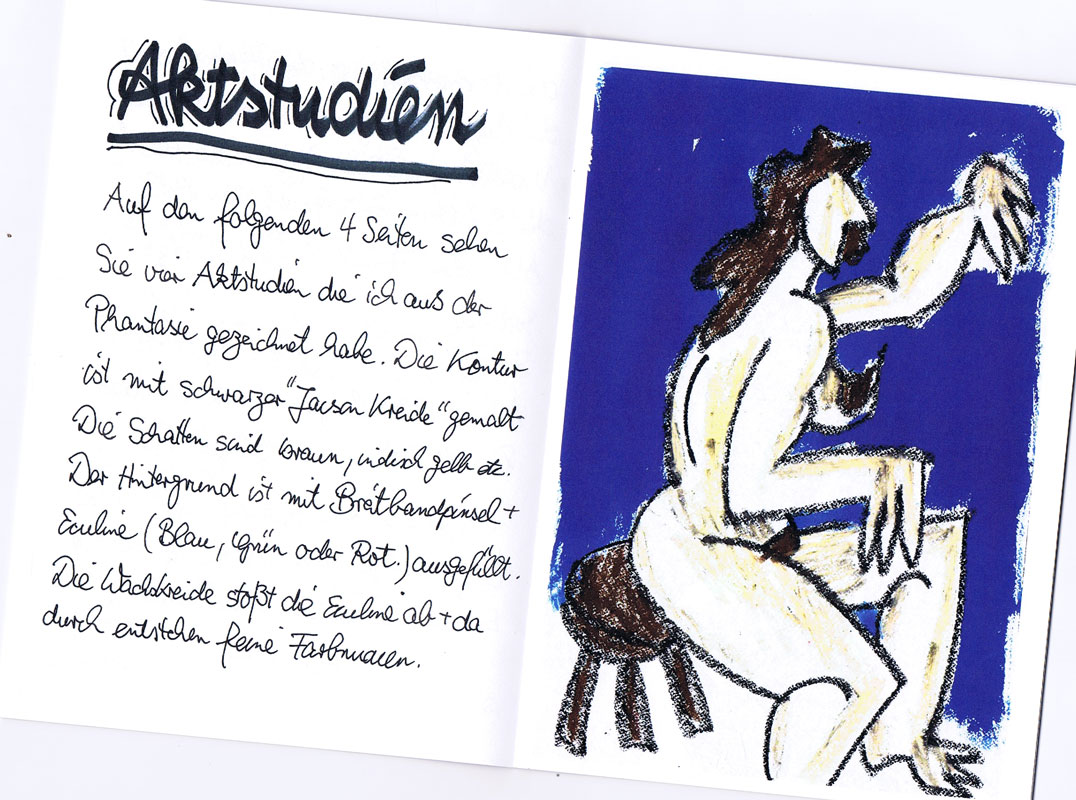 Aktstudien
Auf den folgenden 4 Seiten sehen
Sie vier Aktstudien die ich aus der
Phantasie gezeichnet habe. Die Kontur
ist mit schwarzer "Jacson Kreide" gemalt
Die Schatten sind braun, indisch gelb etz.
Der Hintergrund ist mit Breitbandpinsel +
Ecoline (Blau, Grün oder Rot.) ausgefüllt.
Die Wachskreide stoßt die Ecoline ab + da
durch entstehen feine Farbnuacen.